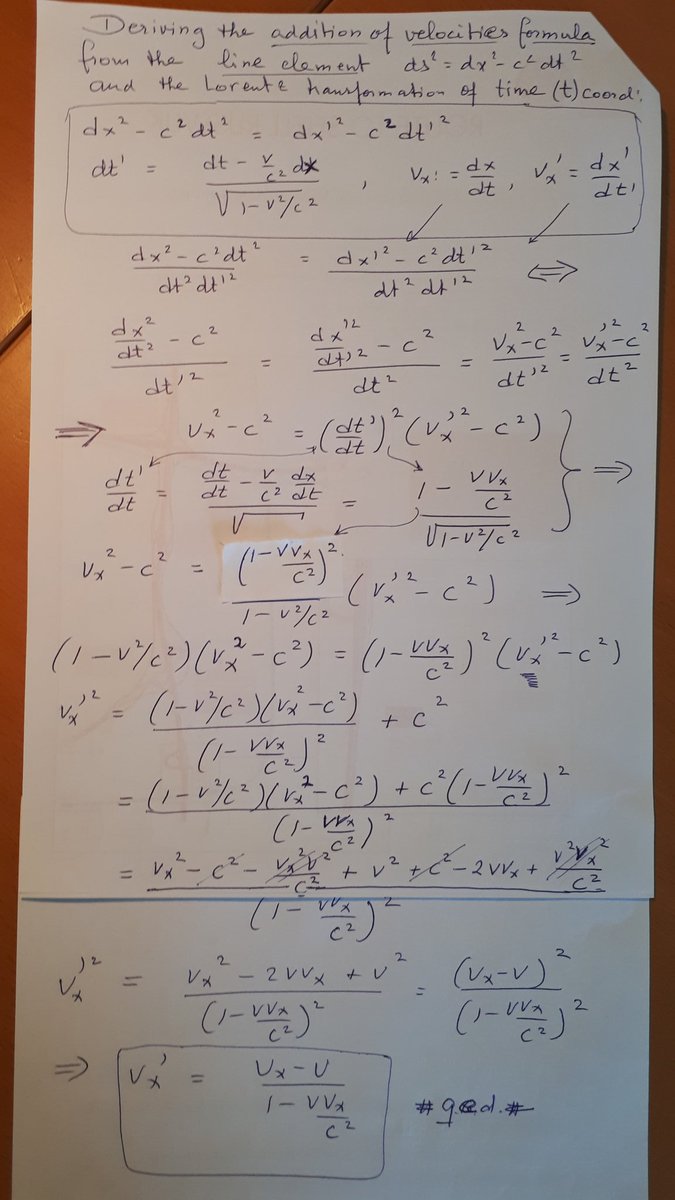 Deriving the addition of velocities formula
from the line element ds² = dx² - c² dt²
and the Lorentz transformation of time (t) coord:
dx² - c² dt² = dx'² - c² dt'²
dt' = (dt - v/c² dx) / √(1 - v²/c²) , Vx := dx/dt , Vx' = dx'/dt'
(dx² - c² dt²) / (dt² dt'²) = (dx'² - c² dt'²) / (dt² dt'²) ⟺
(dx²/dt² - c²) / dt'² = (dx'²/dt'² - c²) / dt² = (Vx² - c²) / dt'² = (Vx'² - c²) / dt²
⟹ Vx² - c² = (dt'/dt)² (Vx'² - c²)
dt'/dt = (dt/dt - v/c² dx/dt) / √ = (1 - VVx/c²) / √(1 - v²/c²) } ⟹
Vx² - c² = (1 - VVx/c²)² / (1 - v²/c²) (Vx'² - c²) ⟹
(1 - v²/c²)(Vx² - c²) = (1 - VVx/c²)² (Vx'² - c²)
Vx'² = (1 - v²/c²)(Vx² - c²) / (1 - VVx/c²)² + c²
= ((1 - v²/c²)(Vx² - c²) + c² (1 - VVx/c²)²) / (1 - VVx/c²)²
= (Vx² - c² - Vx²v²/c² + v² + c² - 2VVx + v²Vx²/c²) / (1 - VVx/c²)²
Vx'² = (Vx² - 2VVx + v²) / (1 - VVx/c²)² = (Vx - V)² / (1 - VVx/c²)²
⟹ Vx' = (Vx - V) / (1 - VVx/c²) # q.e.d. #